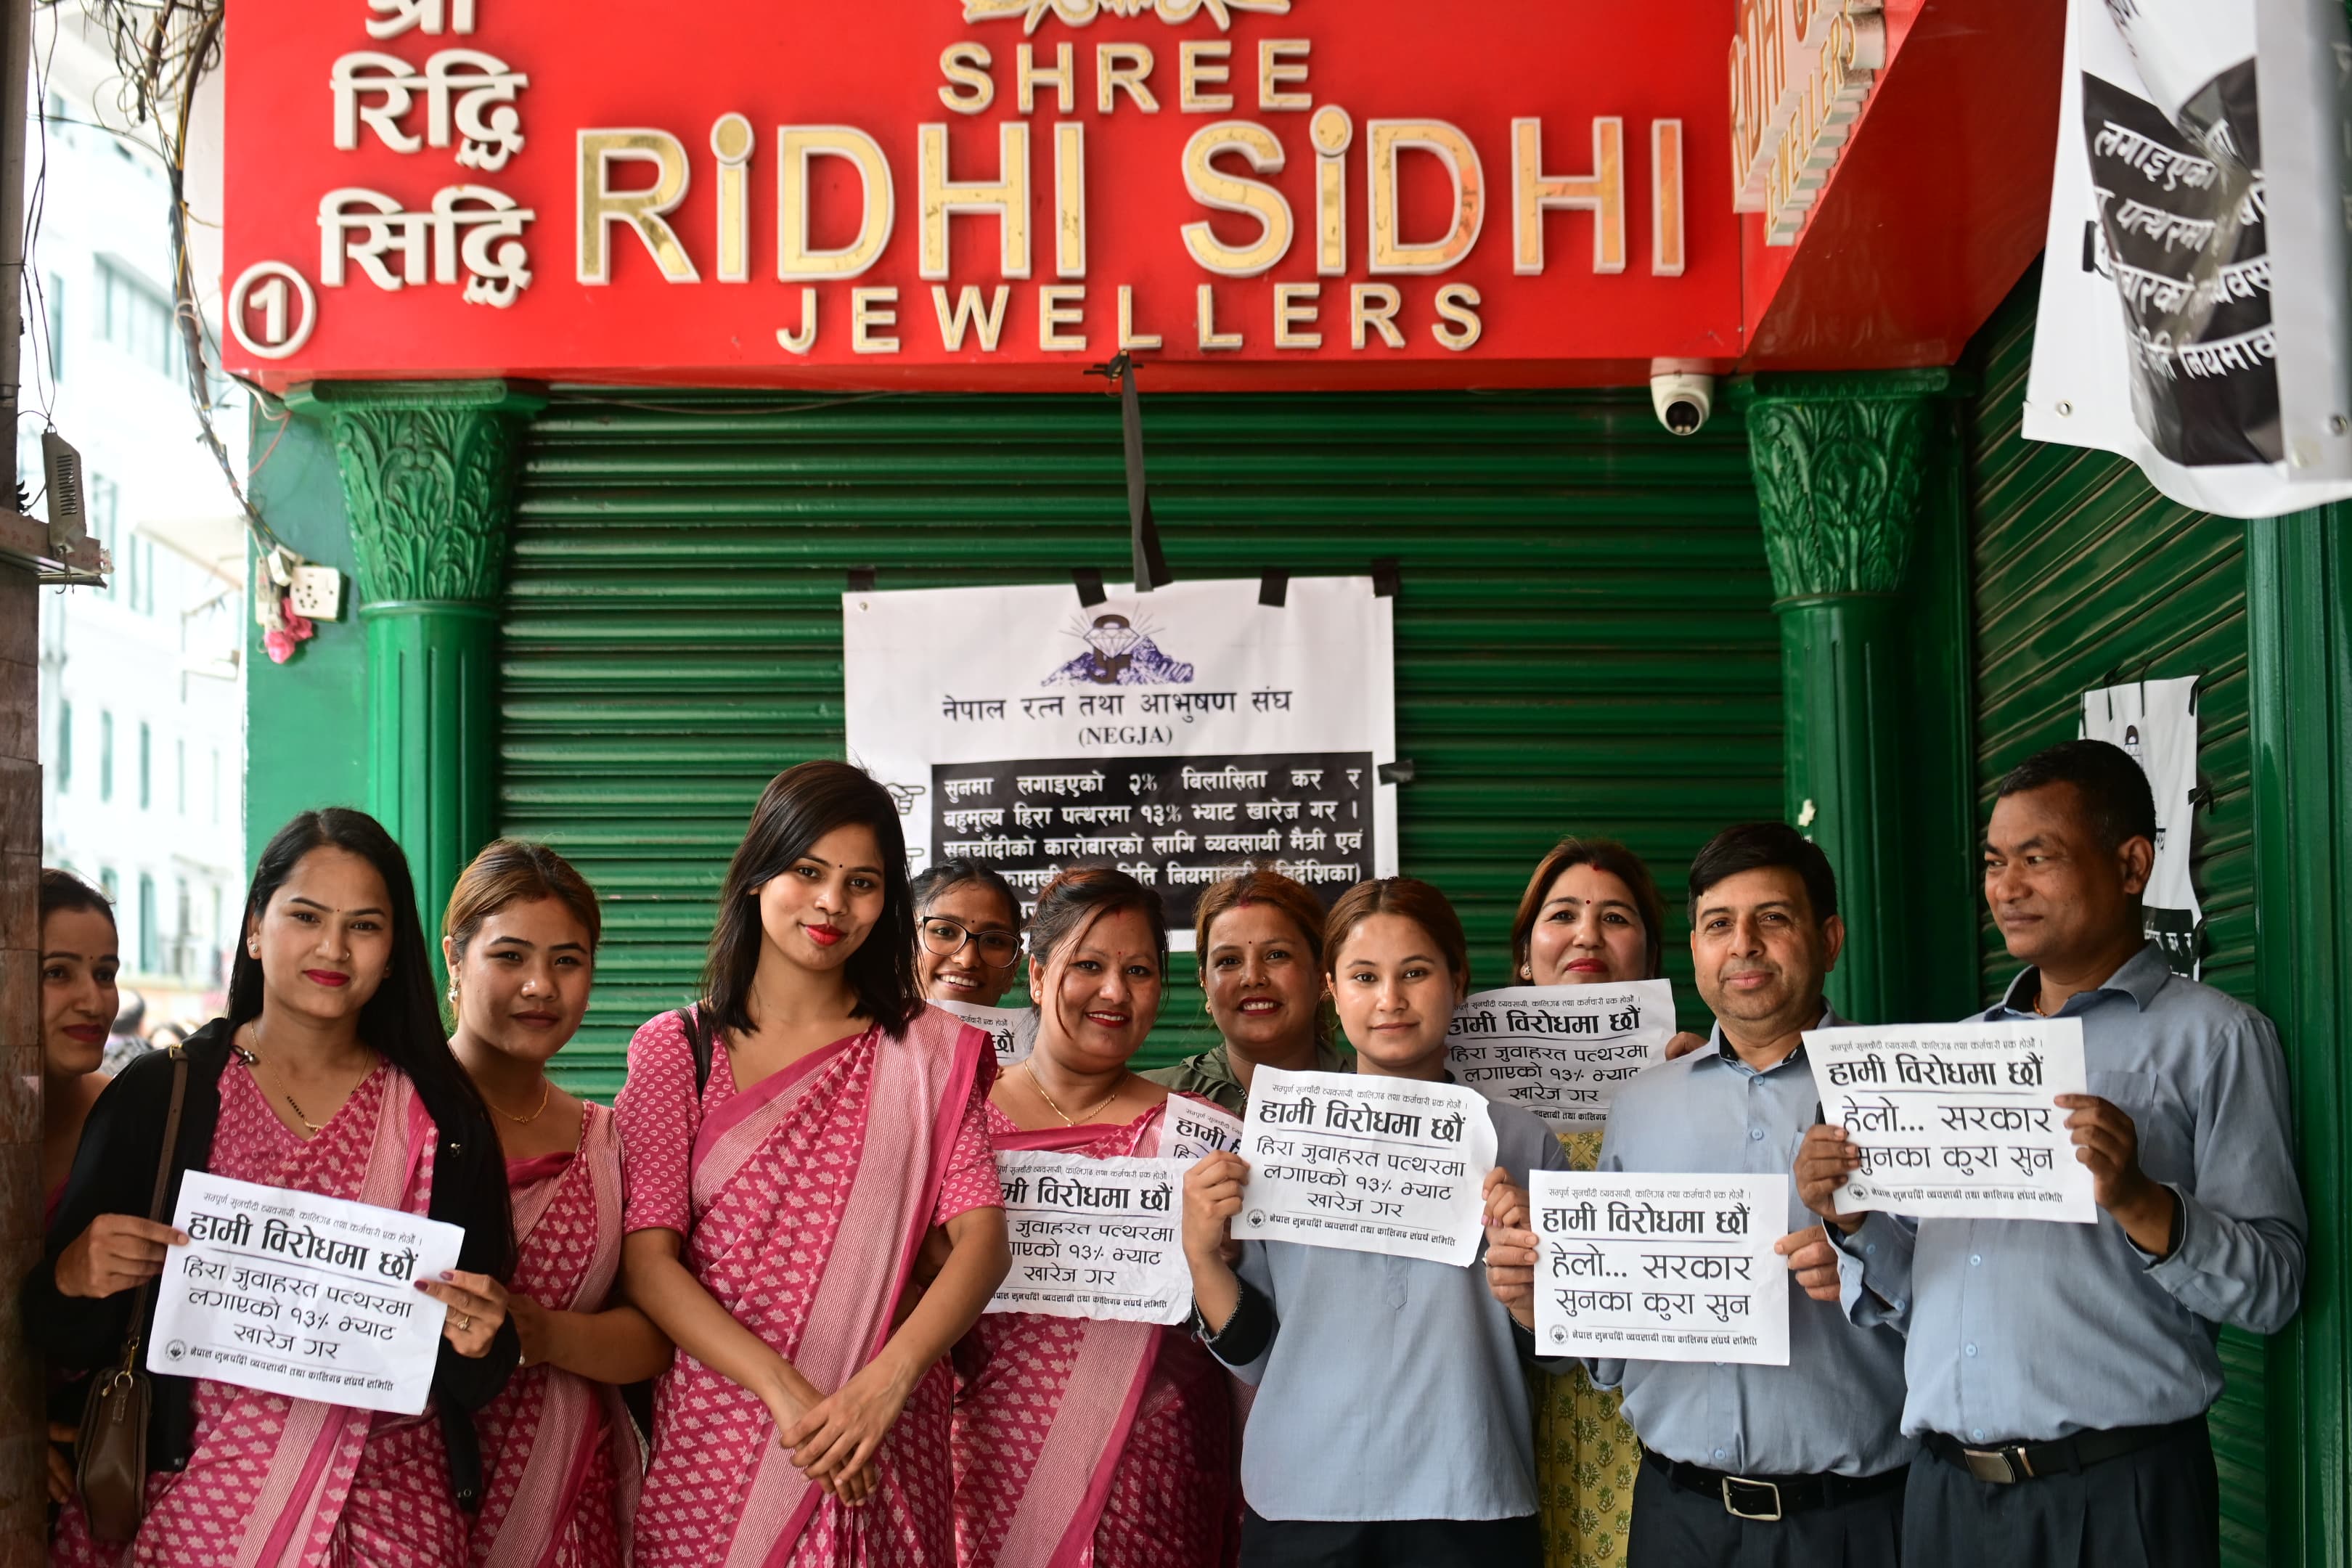 श्री
रिद्धि
सिद्धि
1
SHREE
RiDHI SiDHI
JEWELLERS
RiDHI
JEWELLERS
लगाइएको
पत्थरमा
नेपाल रत्न तथा आभुषण संघ
(NEGJA)
सुनमा लगाइएको २% बिलासिता कर र
बहुमूल्य हिरा पत्थरमा १३% भ्याट खारेज गर ।
सुनचाँदीको कारोबारको लागि व्यवसायी मैत्री एवं
निर्देशिका)
सम्पूर्ण सुनचाँदी व्यवसायी, कालिगढ तथा कर्मचारी एक होऔं ।
हामी विरोधमा छौं
हिरा जुवाहरत पत्थरमा
लगाएको १३% भ्याट
खारेज गर
नेपाल सुनचाँदी व्यवसायी तथा कालिगढ संघर्ष समिति
सम्पूर्ण सुनचाँदी व्यवसायी, कालिगढ तथा कर्मचारी एक होऔं ।
विरोधमा छौं
जुवाहरत पत्थरमा
१३% भ्याट
खारेज गर
सुनचाँदी व्यवसायी तथा कालिगढ संघर्ष समिति
हामी
सम्पूर्ण सुनचाँदी व्यवसायी, कालिगढ तथा कर्मचारी एक होऔं ।
हामी विरोधमा छौं
हिरा जुवाहरत पत्थरमा
लगाएको १३% भ्याट
खारेज गर
नेपाल सुनचाँदी व्यवसायी तथा कालिगढ संघर्ष समिति
सुनचाँदी व्यवसायी, कालिगढ तथा कर्मचारी एक होऔं ।
हामी विरोधमा छौं
हिरा जुवाहरत पत्थरमा
लगाएको १३% भ्याट
खारेज गर
व्यवसायी तथा कालिगढ
सम्पूर्ण सुनचाँदी व्यवसायी, कालिगढ तथा कर्मचारी एक होऔं ।
हामी विरोधमा छौं
हेलो... सरकार
सुनका कुरा सुन
नेपाल सुनचाँदी व्यवसायी तथा कालिगढ संघर्ष समिति
सम्पूर्ण सुनचाँदी व्यवसायी, कालिगढ तथा कर्मचारी एक होऔं ।
हामी विरोधमा छौं
हेलो... सरकार
सुनका कुरा सुन
नेपाल सुनचाँदी व्यवसायी तथा कालिगढ संघर्ष समिति